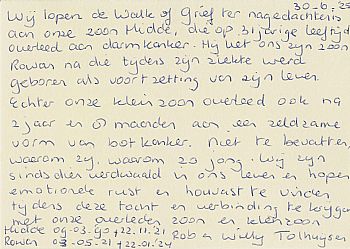 30-6-'25
Wij lopen de Walk of Grief ter nagedachtenis
aan onze zoon Hidde, die op 31 jarige leeftijd
overleed aan darmkanker. Hij liet ons zijn zoon
Rowan na die tijdens zijn ziekte werd
geboren als voortzetting van zijn leven.
Echter onze kleinzoon overleed ook na
2 jaar en 8 maanden aan een zeldzame
vorm van botkanker. Niet te bevatten,
waarom zij, waarom zo jong. Wij zijn
sindsdien verdwaald in ons leven en hopen
emotionele rust en houvast te vinden
tijdens deze tocht en verbinding te krijgen
met onze overleden zoon en kleinzoon.
Hidde 09-03-90 †22.11.21
Rowan 03-05-21 †22-01-24
Rob & Willy Tolhuijsen